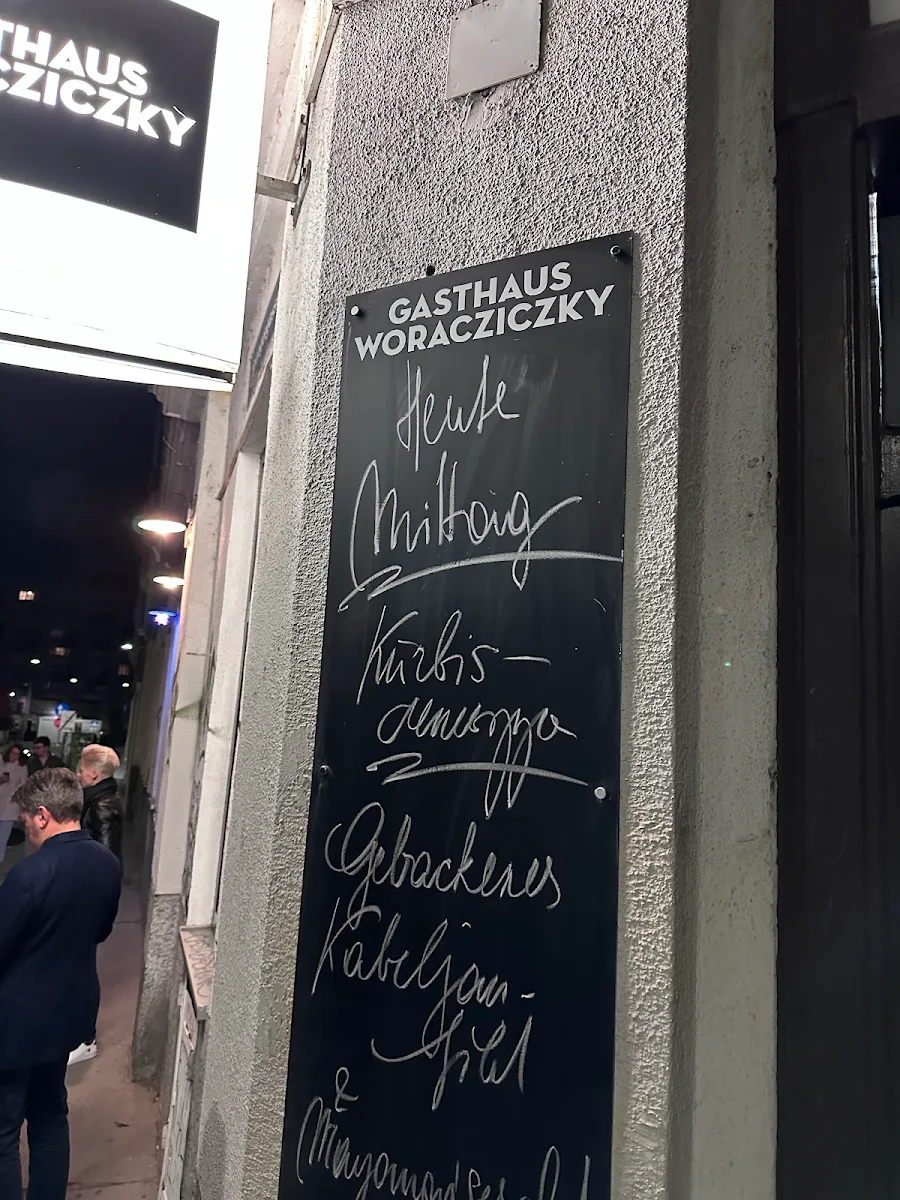 THAUS
CZICZKY
GASTHAUS
WORACZICZKY
Heute
Mittag
Kürbis-
cremesuppe
Gebackenes
Kabeljau-
filet
&